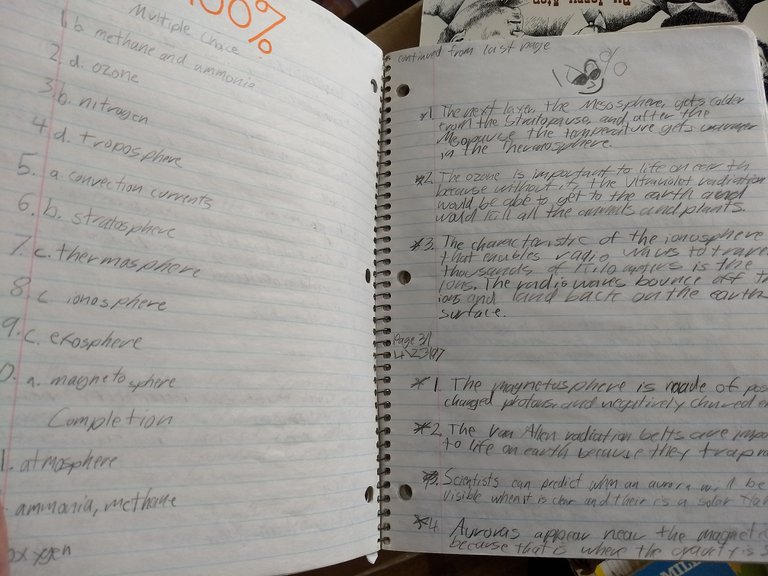 100%
Multiple Choice
1. b methane and ammonia
2. d. ozone
3. b. nitrogen
4. d. troposphere
5. a. convection currents
6. b. stratosphere
7. c. thermosphere
8. c ionosphere
9. c. exosphere
0. a. magneto sphere
Completion
1. atmosphere
ammonia, methane
oxygen
continued from last page
100%
*1. The next layer, the Mesosphere, gets colder
from the Stratopause, and after the
Mesopause the temperature gets warmer
in the Thermosphere.
*2. The ozone is important to life on earth
because without it, the Ultraviolet radiation
would be able to get to the earth and
would kill all the animals and plants.
*3. The characteristic of the ionosphere
that enables radio waves to trave
thousands of kilometers is the
ions. The radio waves bounce off th
ions and land back on the earth
surface.
Page 311
4\23\97
*1. The magnetosphere is made of pos
charged protons and negatively charged e
*2. The Van Allen radiation belts are impo
to life on earth because they trap
*3. Scientists can predict when an aurora will be
visible when it is clear and their is a solar flar
*4. Auroras appear near the magnetic
because that is where the gravity is s